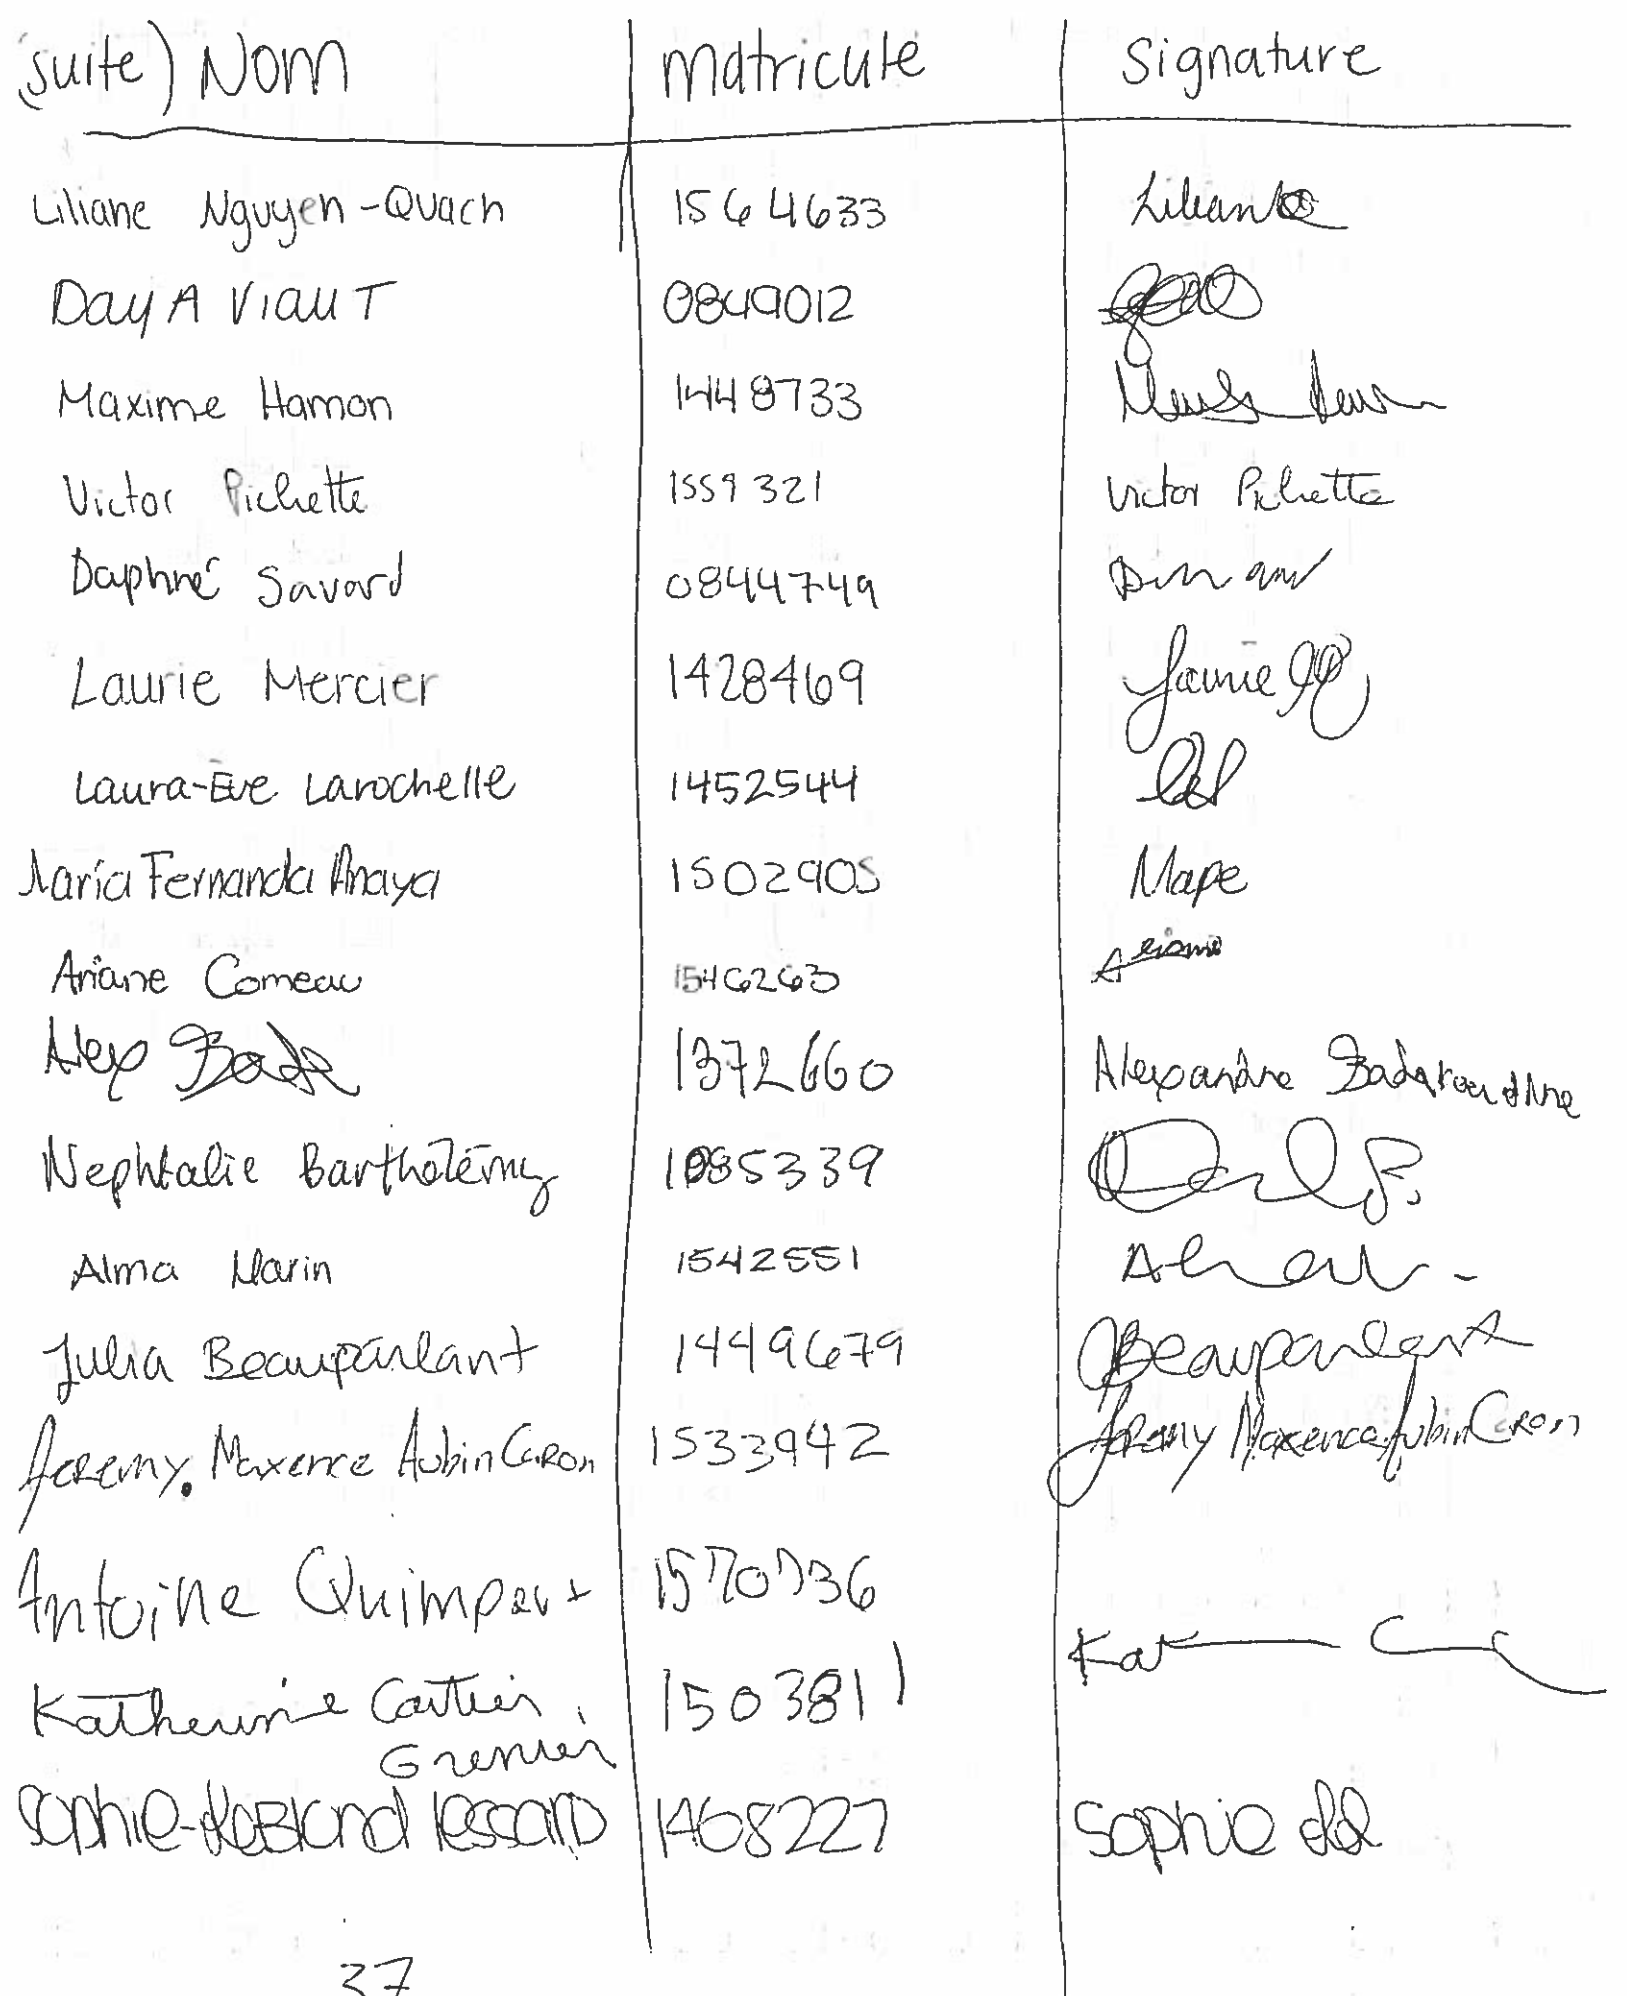 (suite) Nom Matricule Signature
Liliane Nguyen-Quach 1564633 Liliane
DayA ViauT 0849012
Maxime Hamon 1448733
Victor Pichette 1559321 Victor Pichette
Daphné Savard 0844749
Laurie Mercier 1428469 Laurie
Laura-Ève Larochelle 1452544
María Fernanda Anaya 1502905 Mafe
Ariane Comeau 1546263 Ariane
Alex 1372660 Alexandre
Nephtalie Barthélémy 1085339
Alma Marin 1542551
Julia Beauparlant 1449679 JBeauparlant
Jeremy. Maxence Aubin Caron 1533942 Jeremy Maxence Aubin Caron
Antoine 1570736
Katherine Cartier 1503811 Kat
Grenier
Sophie-LeBlond Lessard 1468227 Sophie
37